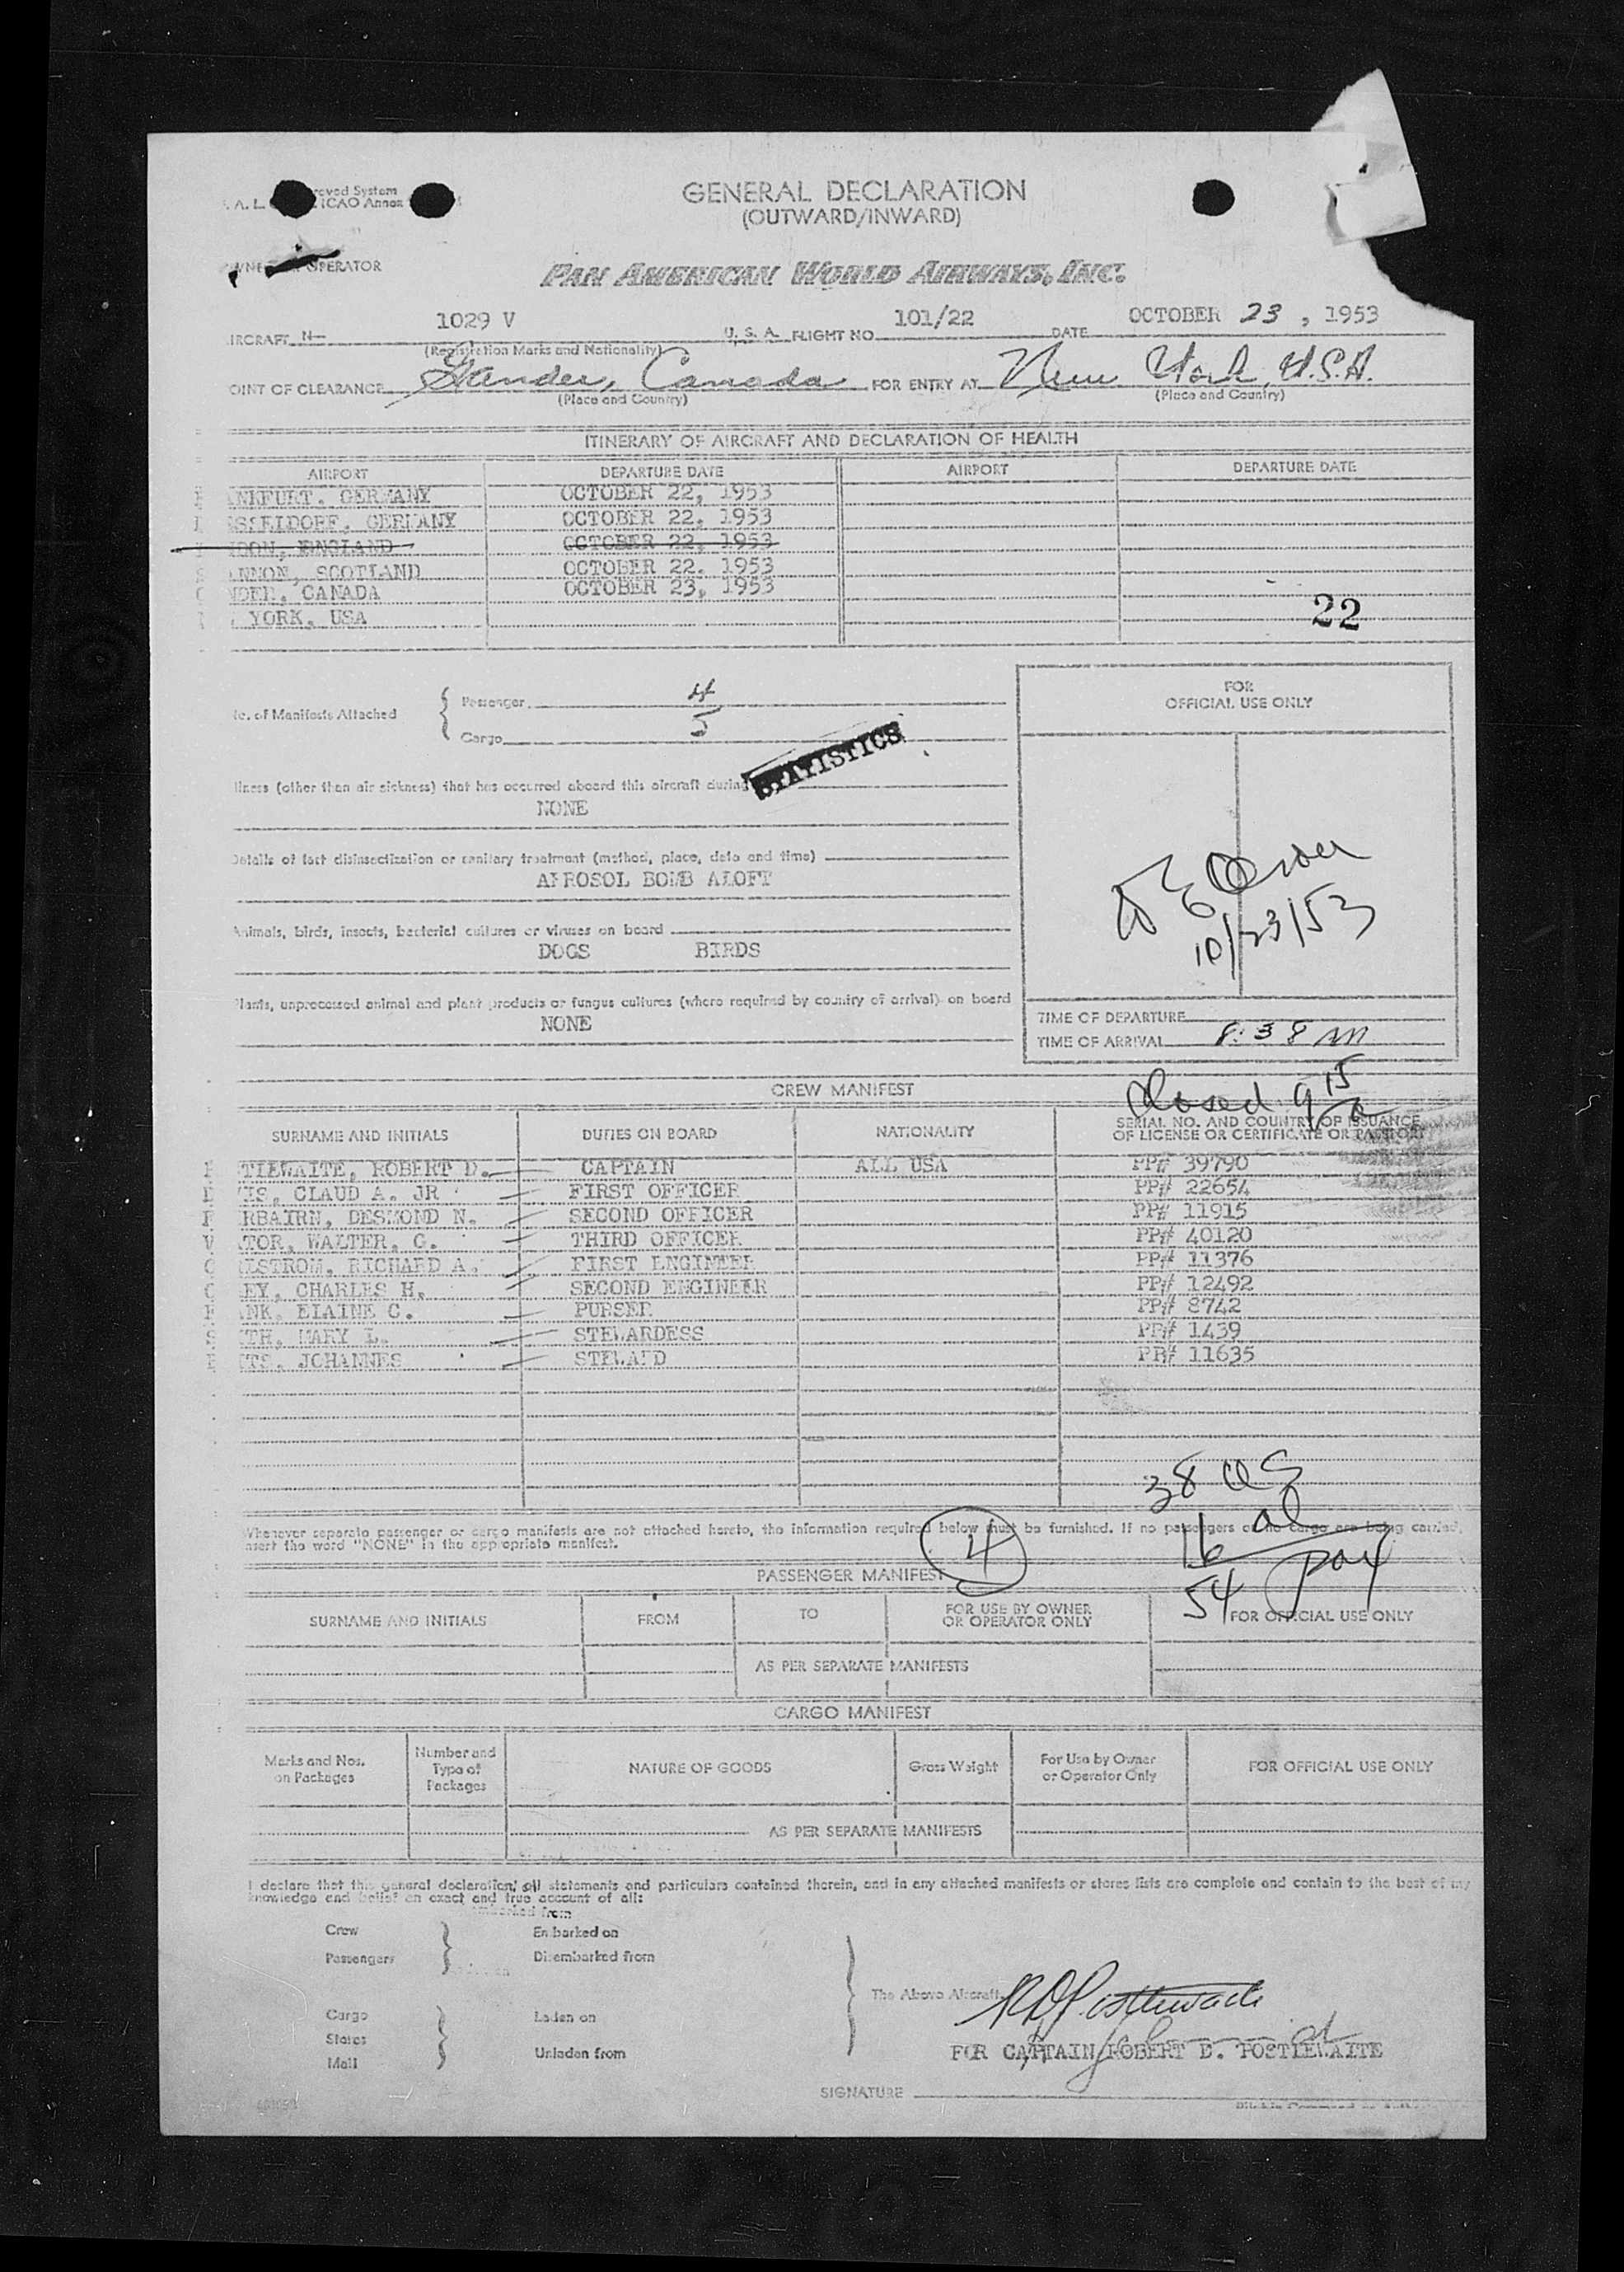 roved System
ICAO Annex
GENERAL DECLARATION
(OUTWARD/INWARD)
OPERATOR
PAN AMERICAN WORLD AIRWAYS, INC.
IRCRAFT N— 1029 V U. S. A. FLIGHT NO. 101/22 DATE OCTOBER 23, 1953
(Registration Marks and Nationality)
OINT OF CLEARANCE Gander, Canada FOR ENTRY AT New York, U.S.A.
(Place and Country) (Place and Country)
ITINERARY OF AIRCRAFT AND DECLARATION OF HEALTH
AIRPORT DEPARTURE DATE AIRPORT DEPARTURE DATE
ANKFURT. GERMANY OCTOBER 22, 1953
SSELDORF. GERMANY OCTOBER 22, 1953
NDON, ENGLAND OCTOBER 22, 1953
ANNON, SCOTLAND OCTOBER 22. 1953
NDER, CANADA OCTOBER 23, 1953
YORK, USA
22
FOR
OFFICIAL USE ONLY
Passenger 4
No. of Manifests Attached
Cargo 5
STATISTICS
llness (other than air sickness) that has occurred aboard this aircraft during
NONE
Details of last disinsectization or sanitary treatment (method, place, date and time)
AEROSOL BOMB ALOFT
10/23/53
Animals, birds, insects, bacterial cultures or viruses on board
DOGS BIRDS
Plants, unprocessed animal and plant products or fungus cultures (where required by country of arrival) on board
NONE
TIME OF DEPARTURE
TIME OF ARRIVAL 8:38 AM
Closed 9 15 a
CREW MANIFEST
SURNAME AND INITIALS DUTIES ON BOARD NATIONALITY SERIAL NO. AND COUNTRY OF ISSUANCE
OF LICENSE OR CERTIFICATE OR PASSPORT
TLEWAITE, ROBERT D. CAPTAIN ALL USA PP# 39790
IS, CLAUD A. JR FIRST OFFICER PP# 22654
RBAIRN, DESMOND N. SECOND OFFICER PP# 11915
ATOR, WALTER. G. THIRD OFFICER PP# 40120
LSTROM, RICHARD A. FIRST ENGINEER PP# 11376
EY, CHARLES H. SECOND ENGINEER PP# 12492
NK. ELAINE C. PURSER PP# 8742
TH, MARY L. STEWARDESS PP# 1439
TS, JOHANNES STEWARD PP# 11635
38 US
16 al
54 pax
Whenever separate passenger or cargo manifests are not attached hereto, the information required below must be furnished. If no passengers or no cargo are being carried,
nsert the word "NONE" in the appropriate manifest.
4
PASSENGER MANIFEST
SURNAME AND INITIALS FROM TO FOR USE BY OWNER
OR OPERATOR ONLY FOR OFFICIAL USE ONLY
AS PER SEPARATE MANIFESTS
CARGO MANIFEST
Marks and Nos.
on Packages Number and
Type of
Packages NATURE OF GOODS Gross Weight For Use by Owner
or Operator Only FOR OFFICIAL USE ONLY
AS PER SEPARATE MANIFESTS
I declare that this general declaration, all statements and particulars contained therein, and in any attached manifests or stores lists are complete and contain to the best of my
knowledge and belief an exact and true account of all:
Crew Embarked on
Passengers Disembarked from
The Above Aircraft
Cargo Laden on
Stores
Mail Unladen from
R D Postlewaite
FOR CAPTAIN ROBERT D. POSTLEWAITE
SIGNATURE